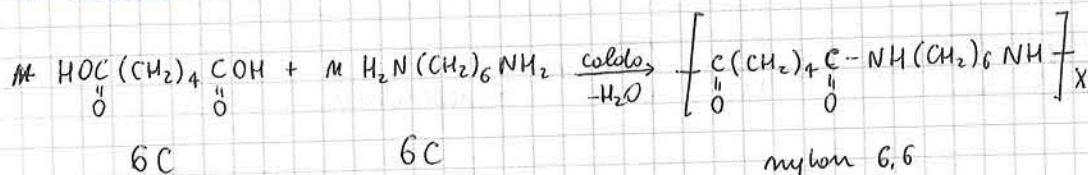 n HOC(CH₂)₄COH + n H₂N(CH₂)₆NH₂ caldo → [C(CH₂)₄C-NH(CH₂)₆NH]x
O O -H₂O O O
6C 6C nylon 6,6